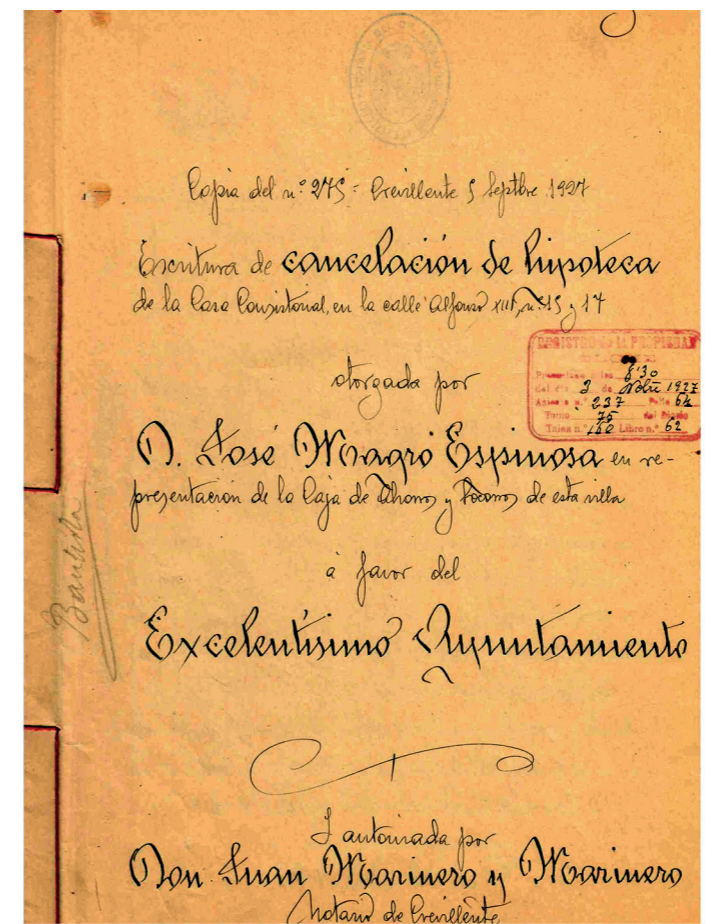 Copia del n.º 275 = Crevillente 5 Septbre 1927
Escritura de cancelación de hipoteca
de la Casa Consistorial, en la calle Alfonso XIII, n.os 15 y 17
REGISTRO de la PROPIEDAD
8'30
del día 3 de Nobre 1927
Asiento n.º 237 Folio 64
Tomo 75 del Diario
Talon n.º 160 Libro n.º 62
otorgada por
D. José Magro Espinosa en re-
presentación de la Caja de Ahorros y Socorros de esta villa
á favor del
Excelentísimo Ayuntamiento
Bautista
Y autorizada por
Don Juan Marinero y Marinero
Notario de Crevillente